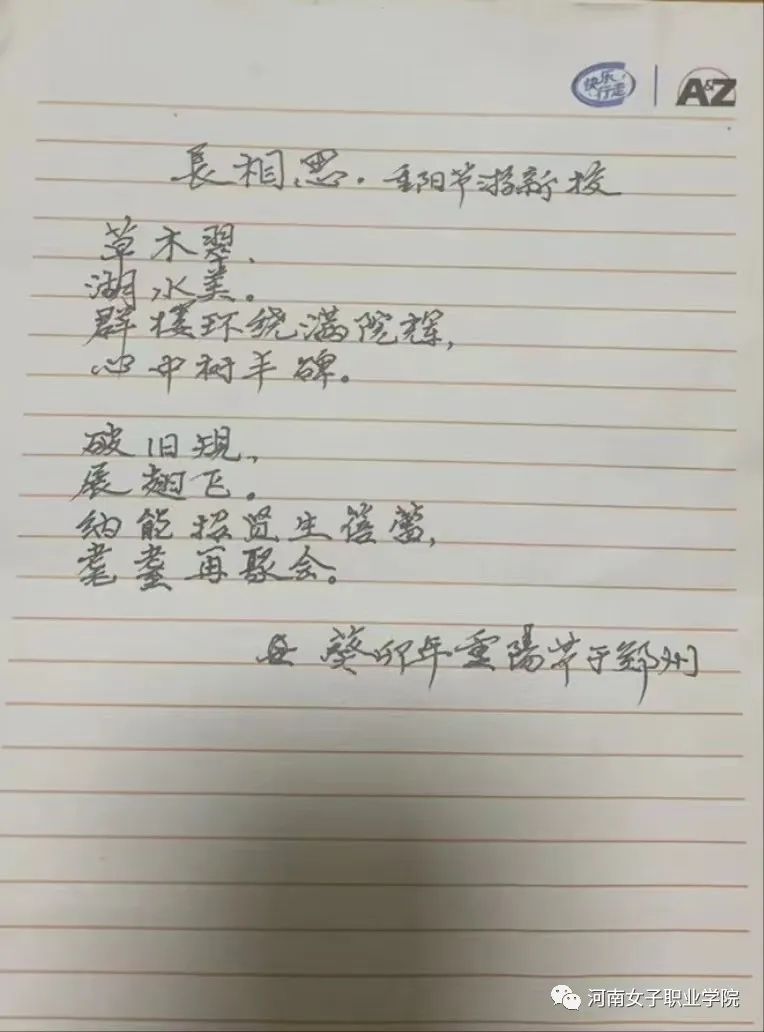 快乐
行走
A&Z
長相思·重阳节游新校
草木翠，
湖水美。
群楼环绕满院辉，
心中树丰碑。
破旧规，
展翅飞。
纳能招贤生蓓蕾，
耄耋再聚会。
癸卯年重陽节于郑州
河南女子职业学院